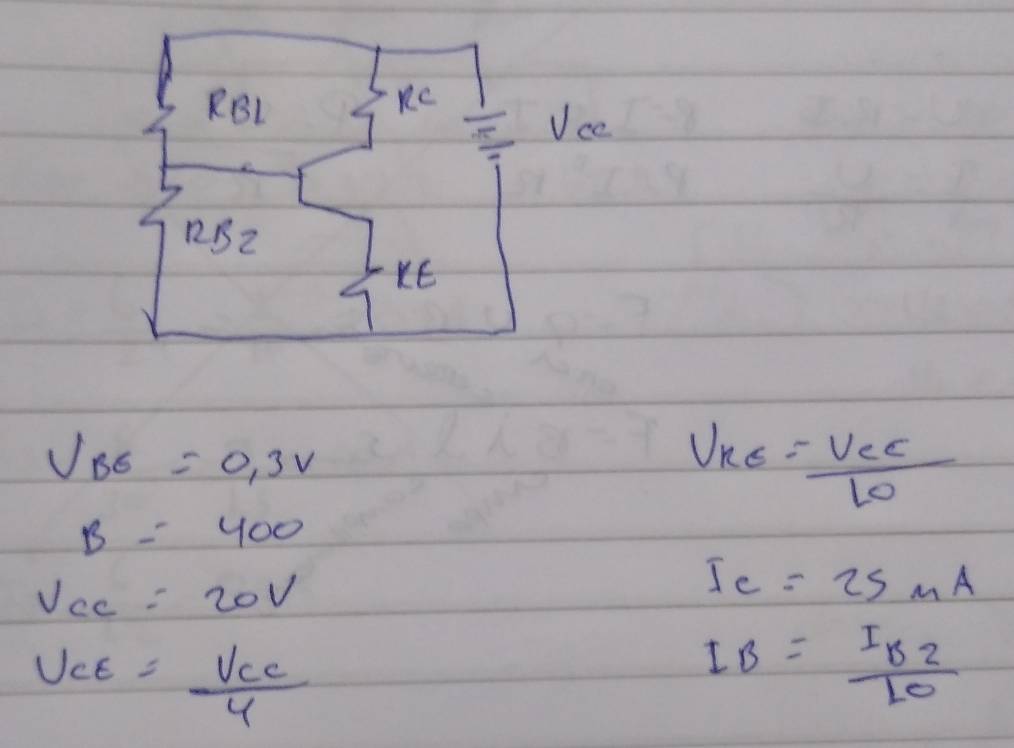 RB1 RC
Vcc
RB2
RE
VBE = 0,3V
B = 400
Vcc = 20V
VCE = Vcc
4
VRE = Vcc
10
Ic = 25 mA
IB = IB2
10